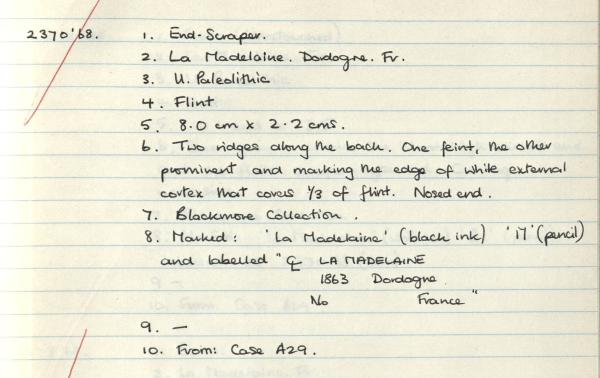 2370'68. 1. End-Scraper.
2. La Madelaine. Dordogne. Fr.
3. U. Paleolithic
4. Flint
5. 8.0 cm x 2.2 cms.
6. Two ridges along the back. One feint, the other
prominent and marking the edge of white external
cortex that covers 1/3 of flint. Nosed end.
7. Blackmore Collection.
8. Marked: 'La Madelaine' (black ink) '17' (pencil)
and labelled "℄ LA MADELAINE
1863 Dordogne
No France"
9. —
10. From: Case A29.